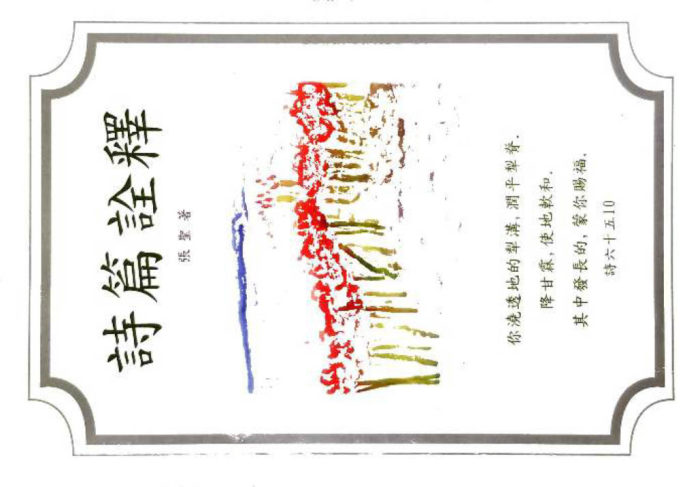 詩篇詮釋
張聖著
你澆透地的犁溝,潤平犁脊.
降甘霖,使地軟和.
其中發長的,蒙你賜福.
詩六十五10